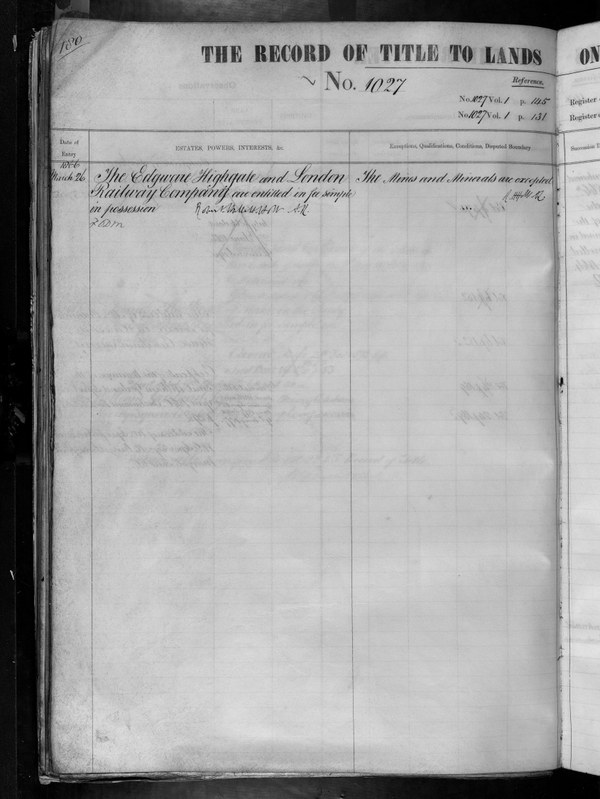 180
THE RECORD OF TITLE TO LANDS
No. 1027
Reference.
No. 1027 Vol. 1 p. 145
No. 1027 Vol. 1 p. 131
Date of
Entry
ESTATES, POWERS, INTERESTS, &c.
Exceptions, Qualifications, Conditions, Disputed Boundary
1866
March 26
The Edgware Highgate and London
Railway Company are entitled in fee simple
in possession
The Mines and Minerals are excepted
ON
Register
Register